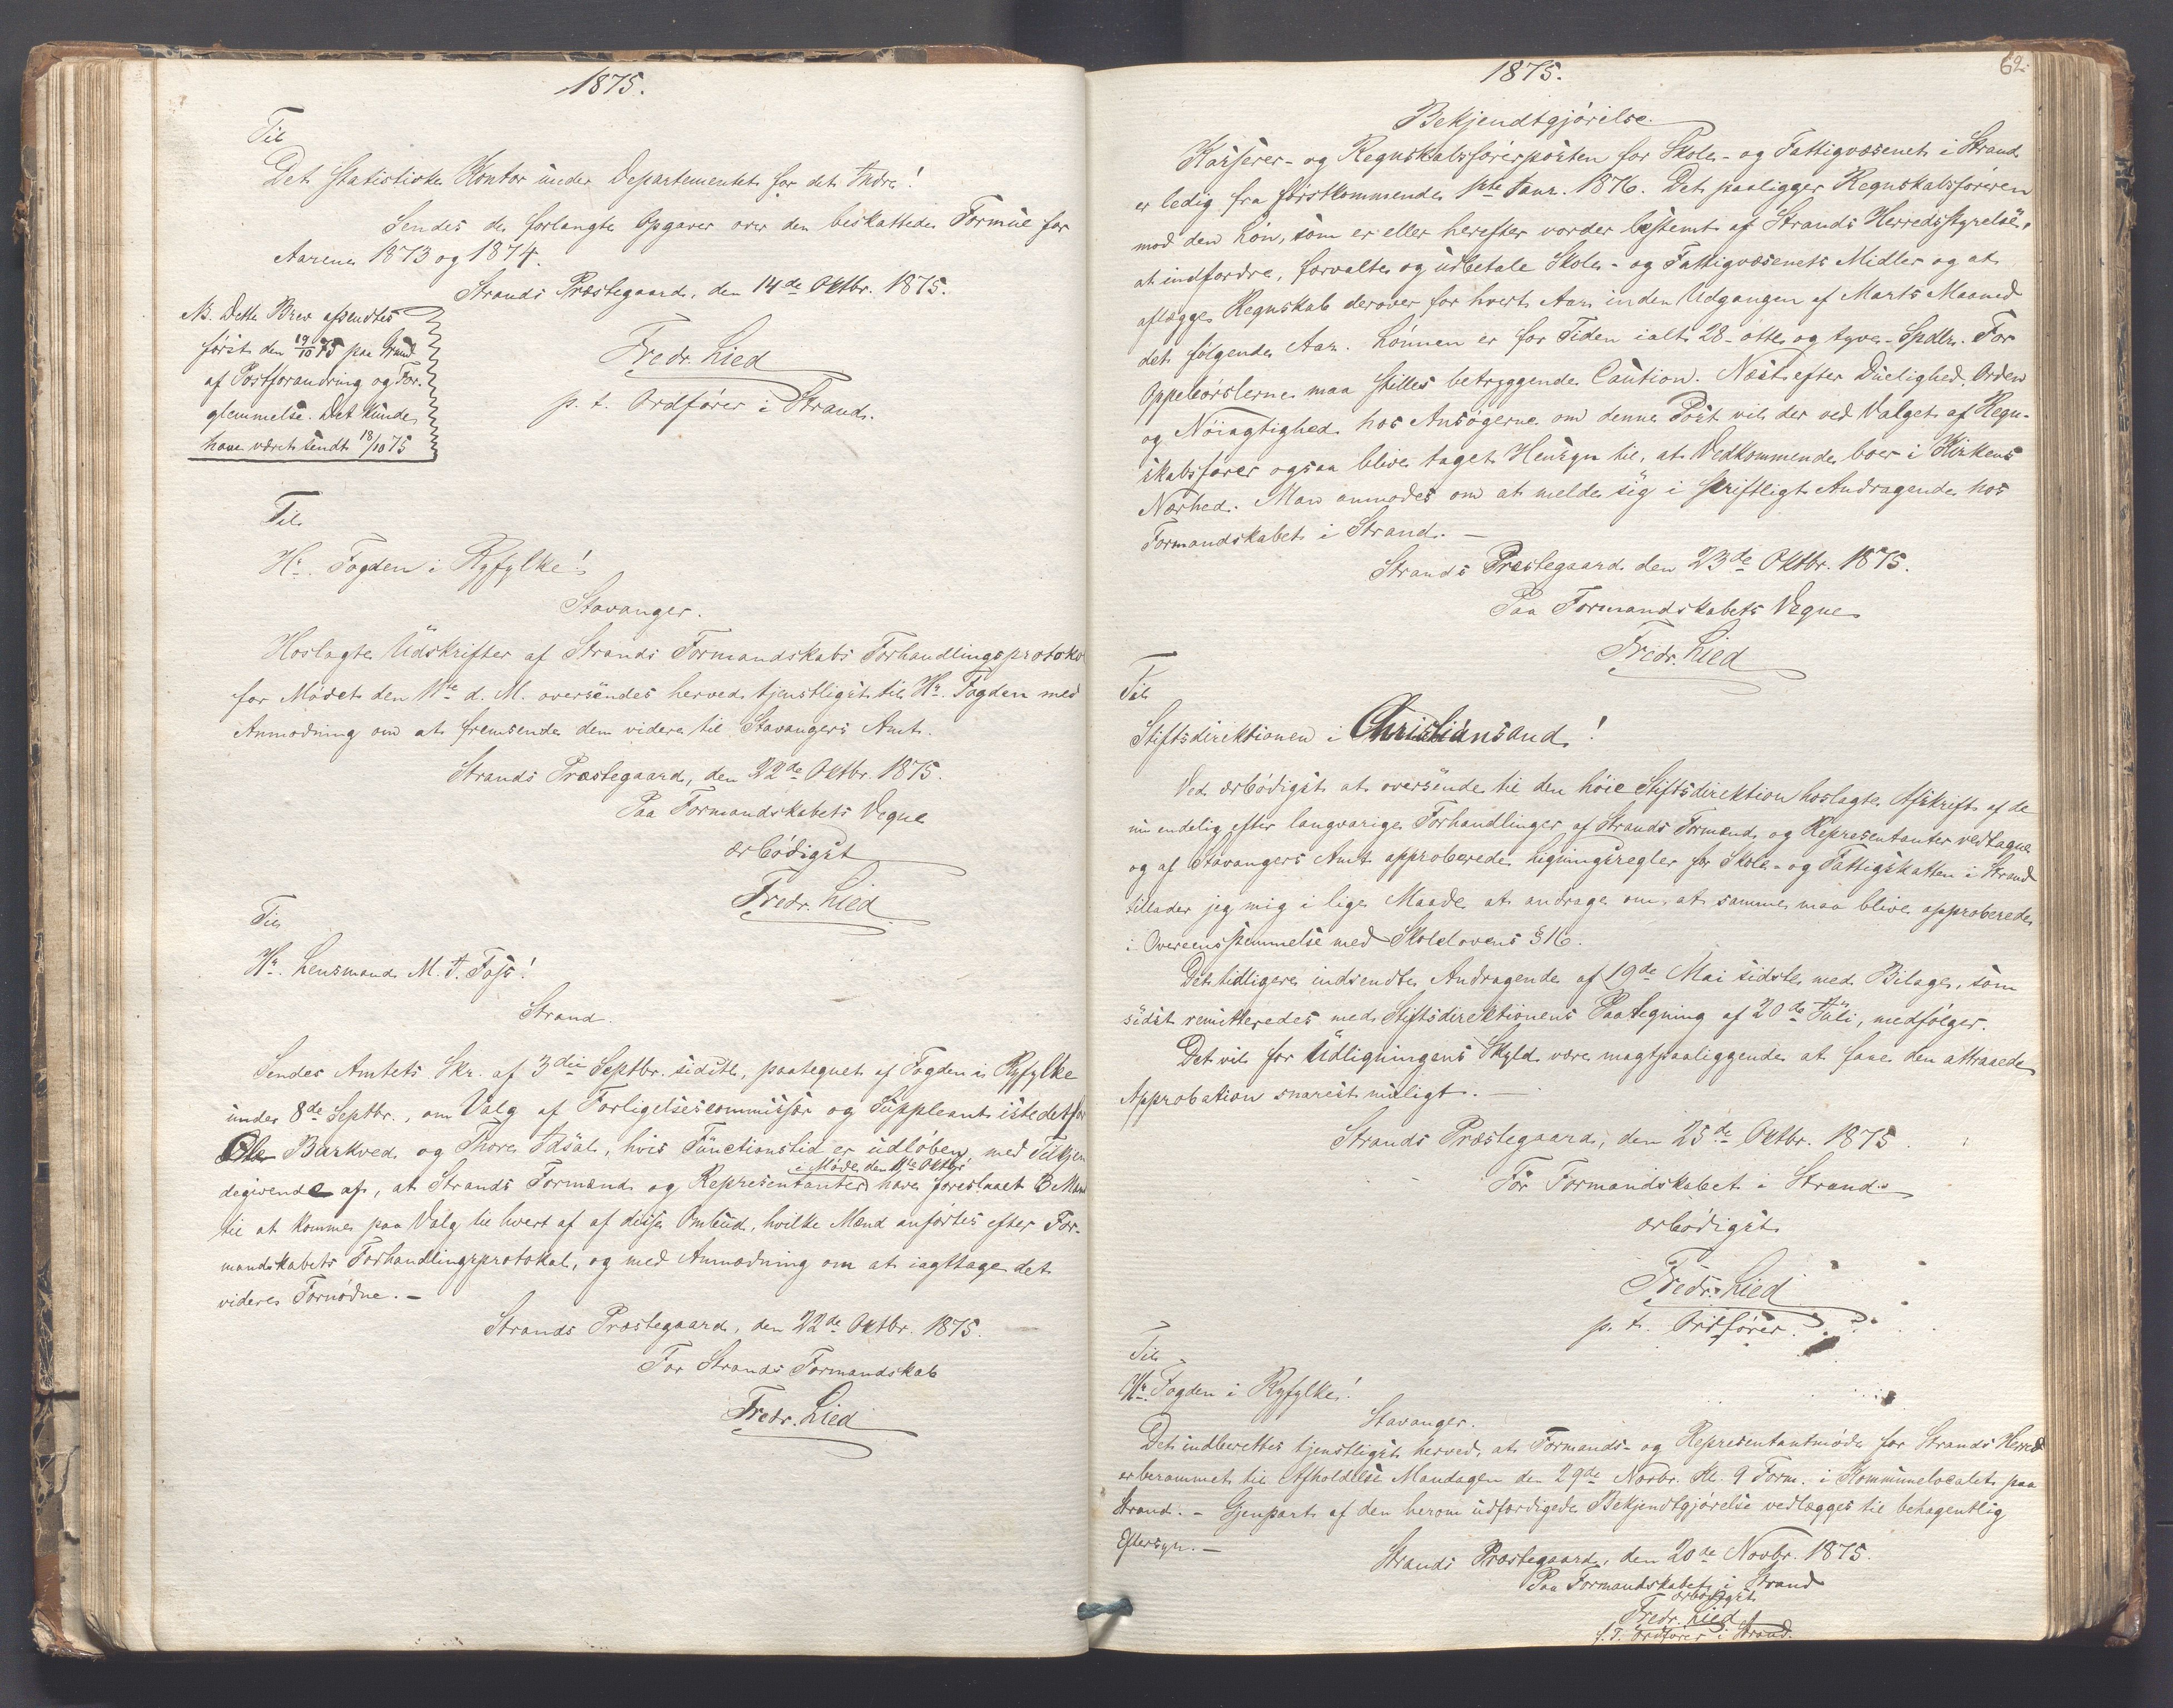 1875.
Til
Det statistiske Kontor under Departementet for det Indre!
Sendes de forlangte Opgaver over den beskattede Formue for
Aarene 1873 og 1874.
Strands Præstegaard, den 14de Oktbr. 1875.
Fredr. Lied
p. t. Ordfører i Strand.
NB. Dette Brev afsendtes
først den 19/10 75 paa Grund
af Postforandring og For-
glemmelse. Det kunde
have været sendt 18/10 75
Til
Hr. Fogden i Ryfylke!
Stavanger.
Hoslagte Udskrifter af Strands Formandskabs Forhandlingsprotoko
for Mødet den 11te d. M. oversendes herved tjenstligst til Hr. Fogden med
Anmodning om at fremsende dem videre til Stavangers Amt.
Strands Præstegaard, den 22de Oktbr. 1875.
Paa Formandskabets Vegne
ærbødigst
Fredr. Lied
Til
Hr. Lensmand M. T. Foss!
Strand.
Sendes Amtets Skr. af 3die Septbr. sidstl., paategnet af Fogden i Ryfylke
under 8de Septbr., om Valg af Forligelsescommissær og Suppleant istedetfor
Ole Barkved og Thore Idsal, hvis Functionstid er udløben, med Tilkjen
i Møde den 11te Oktbr
degivende af, at Strands Formænd og Representanter have foreslaaet 3 Mæn
til at komme paa Valg til hvert af af disse Ombud, hvilke Mænd anføres efter For-
mandskabets Forhandlingsprotokol, og med Anmodning om at iagttage det
videre Fornødne. -
Strands Præstegaard, den 22de Oktbr. 1875.
For Strands Formandskab
Fredr. Lied
62.
1875.
Bekjendtgjørelse.
Kasserer- og Regnskabsførerposten for Skole- og Fattigvæsenet i Strand
er ledig fra førstkommende 1ste Janr. 1876. Det paaligger Regnskabsføreren
mod den Løn, som er eller herefter vorder bestemt af Strands Herredsstyrelse,
at indfordre, forvalte og udbetale Skole- og Fattigvæsenets Midler og at
aflægge Regnskab derover for hvert Aar inden Udgangen af Marts Maaned
det følgende Aar. Lønnen er for Tiden ialt 28 - otte og tyve - Spdlr. For
Oppebørslerne maa stilles betryggende Caution. Næst efter Duelighed, Orden
og Nøiagtighed hos Ansøgerne om denne Post vil der ved Valget af Regn-
skabsfører ogsaa blive taget Hensyn til, at Vedkommende boer i Kirkens
Nærhed. Man anmodes om at melde sig i skriftligt Andragende hos
Formandskabet i Strand. -
Strands Præstegaard den 23de Oktbr. 1875.
Paa Formandskabets Vegne
Fredr. Lied
Til
Stiftsdirektionen i Christiansand!
Ved ærbødigst at oversende til den høie Stiftsdirektion hoslagte Afskrift af de
nu endelig efter langvarige Forhandlinger af Strands Formænd og Representanter vedtagne
og af Stavangers Amt approberede Ligningsregler for Skole- og Fattigskatten i Strand
tillader jeg mig i lige Maade at andrage om, at samme maa blive approberede
i Overensstemmelse med Skolelovens § 16.
Det tidligere indsendte Andragende af 19de Mai sidstl. med Bilage, som
sidst remitteredes med Stiftsdirektionens Paategning af 20de Juli, medfølger.
Det vil for Udligningens Skyld være magtpaaliggende at faae den attraaede
Approbation snarest muligt. -
Strands Præstegaard, den 25de Oktbr. 1875.
For Formandskabet i Strand
ærbødigst
Fredr. Lied
p. t. Ordfører.
Til
Hr. Fogden i Ryfylke!
Stavanger.
Det indberettes tjenstligst herved, at Formands- og Representantmøde for Strands Herred
er berammet til Afholdelse Mandagen den 29de Novbr. Kl. 9 Form. i Kommunelocalet paa
Strand. - Gjenpart af den herom udfærdigede Bekjendtgjørelse vedlægges til behagentlig
Eftersyn. -
Strands Præstegaard, den 20de Novbr. 1875.
Paa Formandskabet i Strand
ærbødigst
Fredr. Lied
p. t. Ordfører i Strand.